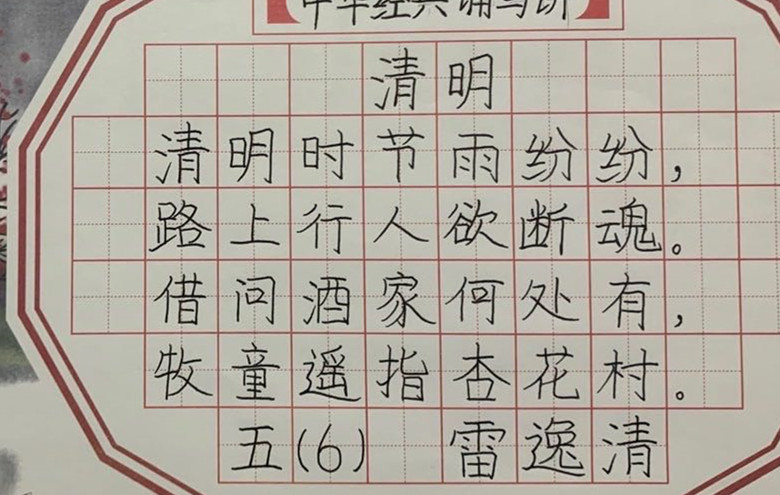 中华经典诵写讲
清明
清明时节雨纷纷，
路上行人欲断魂。
借问酒家何处有，
牧童遥指杏花村。
五(6) 雷逸清